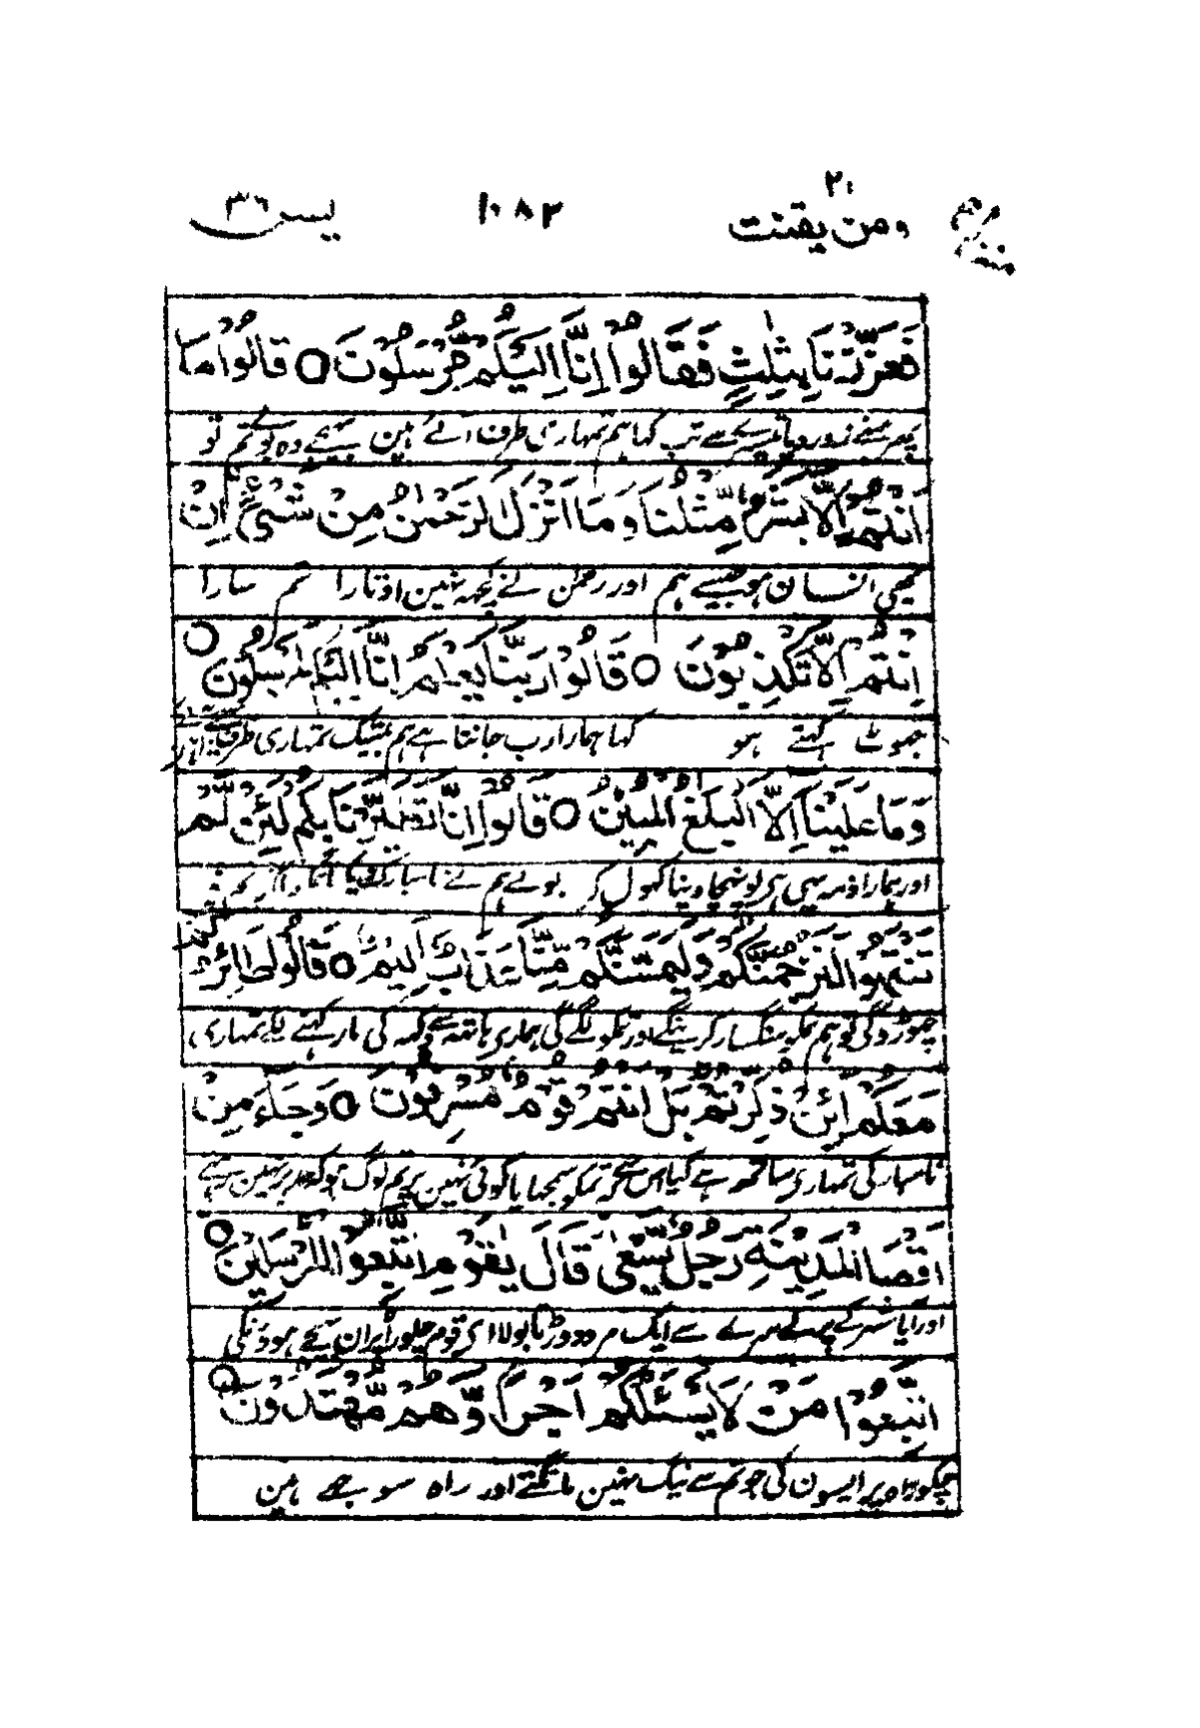 ومن یقنت ۲۰ ۱۰۸۲ یٰسٓ ۳۶
فَعَزَّزْنَا بِثَالِثٍ فَقَالُوْا اِنَّا اِلَیْكُمْ مُّرْسَلُوْنَ ○ قَالُوْا مَا
پھر ہمنے زور دیا تیسرے سے تب کہا ہم تمہاری طرف آئے ہین بھیجے وہ بولے تم تو
اَنْتُمْ اِلَّا بَشَرٌ مِّثْلُنَا وَمَا اَنْزَلَ الرَّحْمٰنُ مِنْ شَیْءٍ اِنْ
یہی انسان ہو جیسے ہم اور رحمٰن نے کچھ نہین اوتارا تم سارا
اَنْتُمْ اِلَّا تَكْذِبُوْنَ ○ قَالُوْا رَبُّنَا یَعْلَمُ اِنَّا اِلَیْكُمْ لَمُرْسَلُوْنَ ○
جھوٹ کہتے ہو کہا ہمارا رب جانتا ہے ہم بیشک تمہاری طرف
وَمَا عَلَیْنَا اِلَّا الْبَلٰغُ الْمُبِیْنُ ○ قَالُوْا اِنَّا تَطَیَّرْنَا بِكُمْ لَئِنْ لَّمْ
اور ہمارا ذمہ یہی ہی پونہچا دینا کھول کر بولے ہم نے نامبارک
تَنْتَهُوْا لَنَرْجُمَنَّكُمْ وَلَیَمَسَّنَّكُمْ مِّنَّا عَذَابٌ اَلِیْمٌ ○ قَالُوْا طَائِرُكُمْ
چھوڑو گی تو ہم تمکو سنگسار کرینگے اور تمکو لگے گی ہماری ہاتھ سے دکھ کی مار کہنے لگے تمہاری
مَعَكُمْ اَئِنْ ذُكِّرْتُمْ بَلْ اَنْتُمْ قَوْمٌ مُّسْرِفُوْنَ ○ وَجَاءَ مِنْ
نامبارکی تمہاری ساتھ ہے کیا اس سے کہ تمکو سمجہایا کوئی نہین پر تم لوگ ہو کہ حد پر نہین رہتے
اَقْصَا الْمَدِیْنَةِ رَجُلٌ یَّسْعٰی قَالَ یٰقَوْمِ اتَّبِعُوا الْمُرْسَلِیْنَ ○
اور آیا شہر کے پرلے سرے سے ایک مرد دوڑتا بولا ای قوم چلو راہ پر ان بھیجے ہوؤنکی
اتَّبِعُوْا مَنْ لَّا یَسْئَلُكُمْ اَجْرًا وَّهُمْ مُّهْتَدُوْنَ ○
چلو راہ پر ایسون کی جو تم سے نیگ نہین مانگتے اور راہ سوجھے ہین